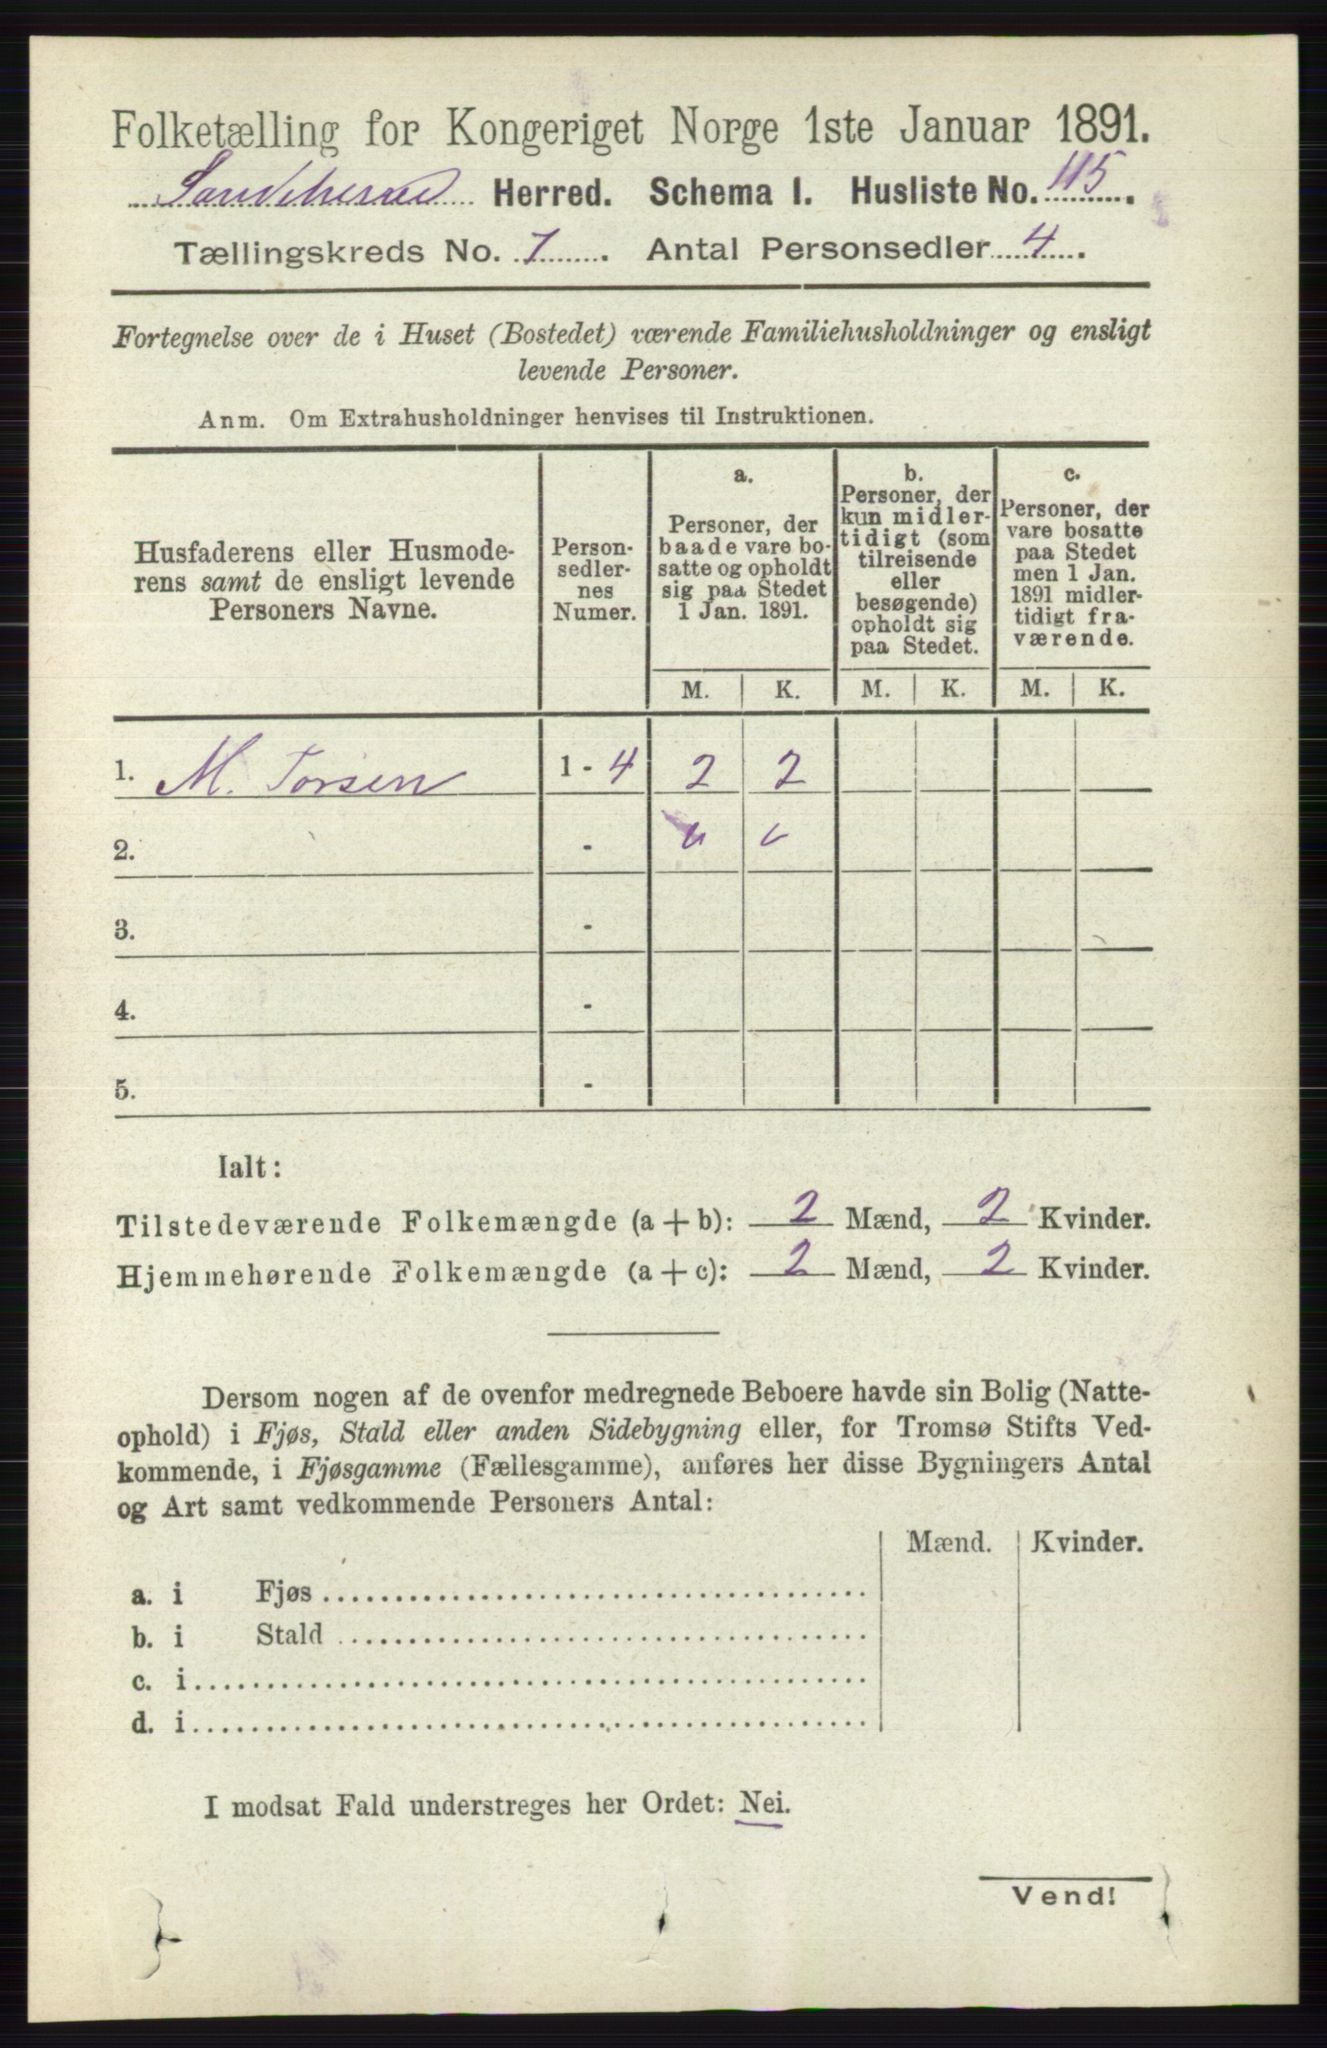 Folketælling for Kongeriget Norge 1ste Januar 1891.
Sandeherred Herred. Schema I. Husliste No. 115.
Tællingskreds No. 7. Antal Personsedler 4.
Fortegnelse over de i Huset (Bostedet) værende Familiehusholdninger og ensligt
levende Personer.
Anm. Om Extrahusholdninger henvises til Instruktionen.
Husfaderens eller Husmode-
rens samt de ensligt levende
Personers Navne.
Person-
sedler-
nes
Numer.
a.
Personer, der
baade vare bo-
satte og opholdt
sig paa Stedet
1 Jan. 1891.
b.
Personer, der
kun midler-
tidigt (som
tilreisende
eller
besøgende)
opholdt sig
paa Stedet.
c.
Personer, der
vare bosatte
paa Stedet
men 1 Jan.
1891 midler-
tidigt fra-
værende.
M. K. M. K. M. K.
1. M. Torsen 1 - 4 2 2
2. -
3. -
4. -
5. -
Ialt:
Tilstedeværende Folkemængde (a + b): 2 Mænd, 2 Kvinder.
Hjemmehørende Folkemængde (a + c): 2 Mænd, 2 Kvinder.
Dersom nogen af de ovenfor medregnede Beboere havde sin Bolig (Natte-
ophold) i Fjøs, Stald eller anden Sidebygning eller, for Tromsø Stifts Ved-
kommende, i Fjøsgamme (Fællesgamme), anføres her disse Bygningers Antal
og Art samt vedkommende Personers Antal:
Mænd. Kvinder.
a. i Fjøs
b. i Stald
c. i
d. i
I modsat Fald understreges her Ordet: Nei.
Vend!